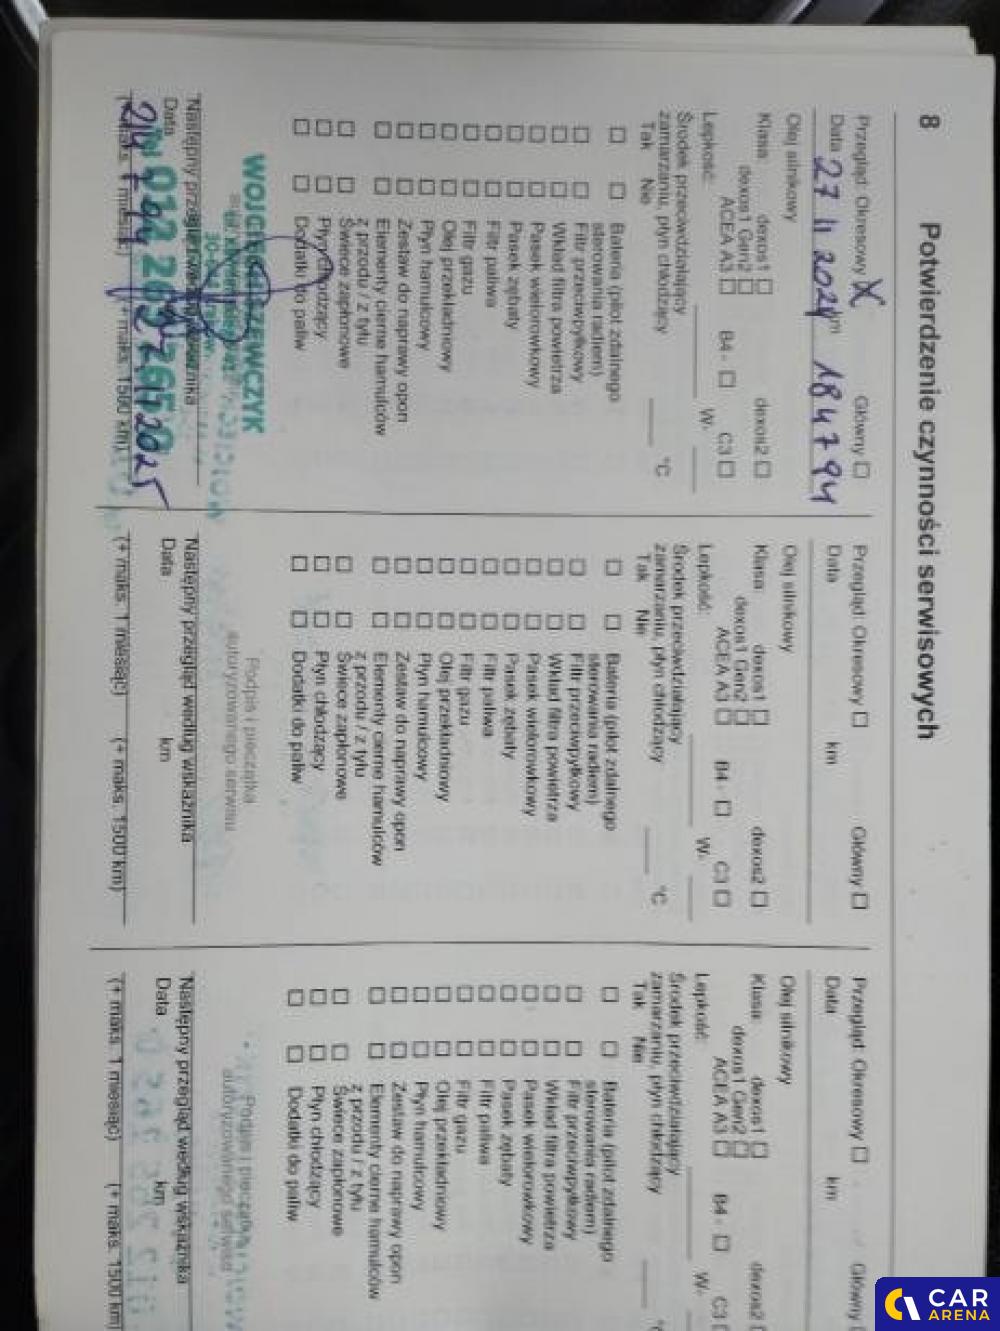 8 Potwierdzenie czynności serwisowych
Przegląd: Okresowy X Główny
Data 27 11 2024 km 184794
Olej silnikowy
Klasa: dexos1 dexos2
dexos1 Gen2
ACEA A3 B4 - C3
Lepkość: W-
Środek przeciwdziałający
zamarzaniu, płyn chłodzący °C
Tak Nie
Bateria (pilot zdalnego
sterowania radiem)
Filtr przeciwpyłkowy
Wkład filtra powietrza
Pasek wielorowkowy
Pasek zębaty
Filtr paliwa
Filtr gazu
Olej przekładniowy
Płyn hamulcowy
Zestaw do naprawy opon
Elementy cierne hamulców
z przodu / z tyłu
Świece zapłonowe
Płyn chłodzący
Dodatki do paliw
Następny przegląd według wskaźnika
Data
(+ maks. 1500 km)
Przegląd: Okresowy Główny
Data km
Olej silnikowy
Klasa: dexos1 dexos2
dexos1 Gen2
ACEA A3 B4 - C3
Lepkość: W-
Środek przeciwdziałający
zamarzaniu, płyn chłodzący °C
Tak Nie
Bateria (pilot zdalnego
sterowania radiem)
Filtr przeciwpyłkowy
Wkład filtra powietrza
Pasek wielorowkowy
Pasek zębaty
Filtr paliwa
Filtr gazu
Olej przekładniowy
Płyn hamulcowy
Zestaw do naprawy opon
Elementy cierne hamulców
z przodu / z tyłu
Świece zapłonowe
Płyn chłodzący
Dodatki do paliw
Podpis i pieczątka
autoryzowanego serwisu
Następny przegląd według wskaźnika
Data km
(+ maks. 1 miesiąc) (+ maks. 1500 km)
Przegląd: Okresowy Główny
Data km
Olej silnikowy
Klasa: dexos1 dexos2
dexos1 Gen2
ACEA A3 B4 - C3
Lepkość: W-
Środek przeciwdziałający
zamarzaniu, płyn chłodzący
Tak Nie
Bateria (pilot zdalnego
sterowania radiem)
Filtr przeciwpyłkowy
Wkład filtra powietrza
Pasek wielorowkowy
Pasek zębaty
Filtr paliwa
Filtr gazu
Olej przekładniowy
Płyn hamulcowy
Zestaw do naprawy opon
Elementy cierne hamulców
z przodu / z tyłu
Świece zapłonowe
Płyn chłodzący
Dodatki do paliw
Podpis i pieczątka
autoryzowanego serwisu
Następny przegląd według wskaźnika
Data km
(+ maks. 1 miesiąc) (+ maks. 1500 km)
CAR
ARENA